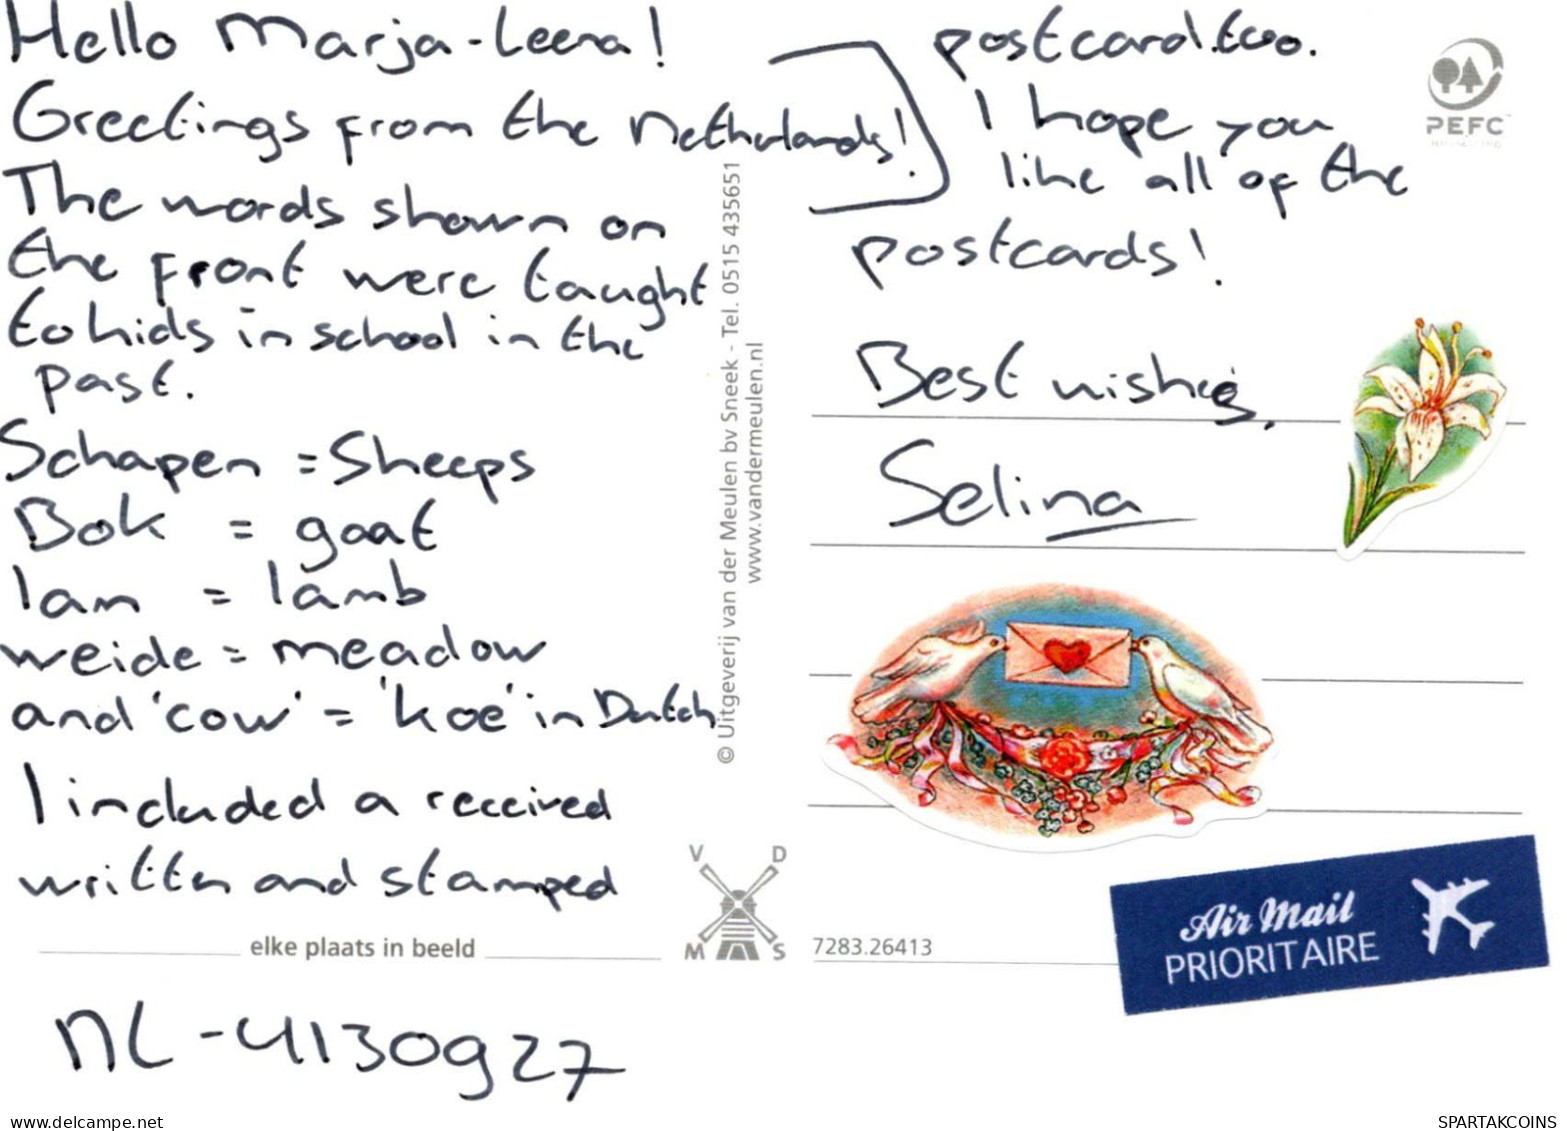 Hello Marja-Leena!
Greetings from the Netherlands!
The words shown on
the front were taught
to kids in school in the
past.
Schapen = Sheeps
Bok = goat
lam = lamb
weide = meadow
and 'cow' = 'koe' in Dutch
I included a received
written and stamped
elke plaats in beeld
NL-4130927
© Uitgeverij van der Meulen bv Sneek - Tel. 0515 435651
www.vandermeulen.nl
V D
M S
postcard too.
I hope you
like all of the
postcards!
Best wishes,
Selina
PEFC
7283.26413
Air Mail
PRIORITAIRE
www.delcampe.net
SPARTAKCOINS